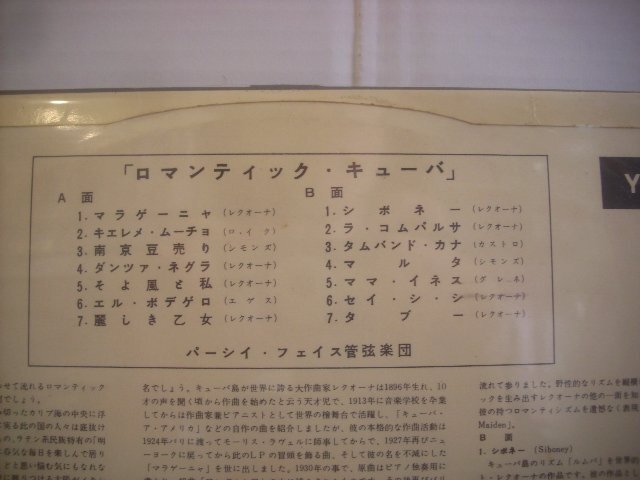 「ロマンティック・キューバ」
A 面
1. マラゲーニャ (レクオーナ)
2. キエレメ・ムーチョ (ロイク)
3. 南京豆売り (シモンズ)
4. ダンツァ・ネグラ (レクオーナ)
5. そよ風と私 (レクオーナ)
6. エル・ボデゲロ (エゲス)
7. 麗しき乙女 (レクオーナ)
B 面
1. シボネー (レクオーナ)
2. ラ・コムパルサ (レクオーナ)
3. タムバンド・カナ (カストロ)
4. マルタ (シモンズ)
5. ママ・イネス (グレネ)
6. セイ・シ・シ (レクオーナ)
7. タブー (レクオーナ)
パーシイ・フェイス管弦楽団
Y
せて流れるロマンティック
切ったカリブ海の中央に浮
来る此の国の人々は底抜け
、ラテン系民族特有の「明
呑気な毎日を楽しんで居り
名でしょう。キューバ島が世界に誇る大作曲家レクオーナは1896年生れ、10
才の声を聞く頃から作曲を始めたと云う天才児で、1913年に音楽学校を卒業
してからは作曲家兼ピアニストとして世界の檜舞台で活躍し、「キューバ・
ア・アメリカ」などの自作の曲を紹介しましたが、彼の本格的な作曲活動は
1924年パリに渡ってモーリス・ラヴェルに師事してからで、1927年再びニュ
ーヨークに戻ってから此のLPの冒頭を飾る曲、そして彼の名を不滅にした
「マラゲーニャ」を世に出しました。1930年の事で、原曲はピアノ独奏用
流れて参りました。野性的なリズムを縦横
ックを生み出すレクオーナの他の一面を知
彼の持つロマンティシズムを遺憾なく表現
Maiden」。
B 面
1. シボネー (Siboney)
キューバ島のリズム「ルムバ」を世界的
ト・レクオーナの作品です。彼の作品とし